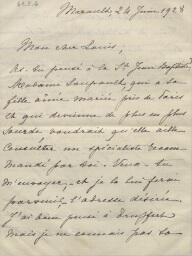 Mérault, 24 Juin 1928
Mon cher Louis,
As-tu pensé à la St Jean Baptiste
Madame Soupault, qui a sa
fille aînée mariée près de Paris
et qui devienne de plus en plus
sourde voudrait qu'elle aille
consulter un spécialiste recom-
mandé par toi. Veux-tu
m'envoyer, et je la lui ferai
parvenir, l'adresse désirée.
J'ai bien pensé à
mais je ne connais pas sa